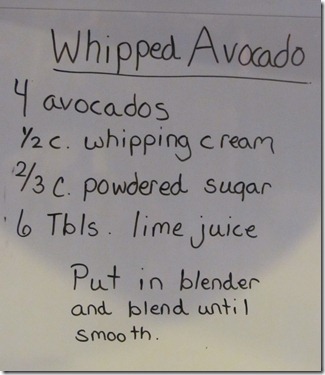 Whipped Avocado
4 avocados
1/2 c. whipping cream
2/3 c. powdered sugar
6 Tbls. lime juice
Put in blender
and blend until
smooth.